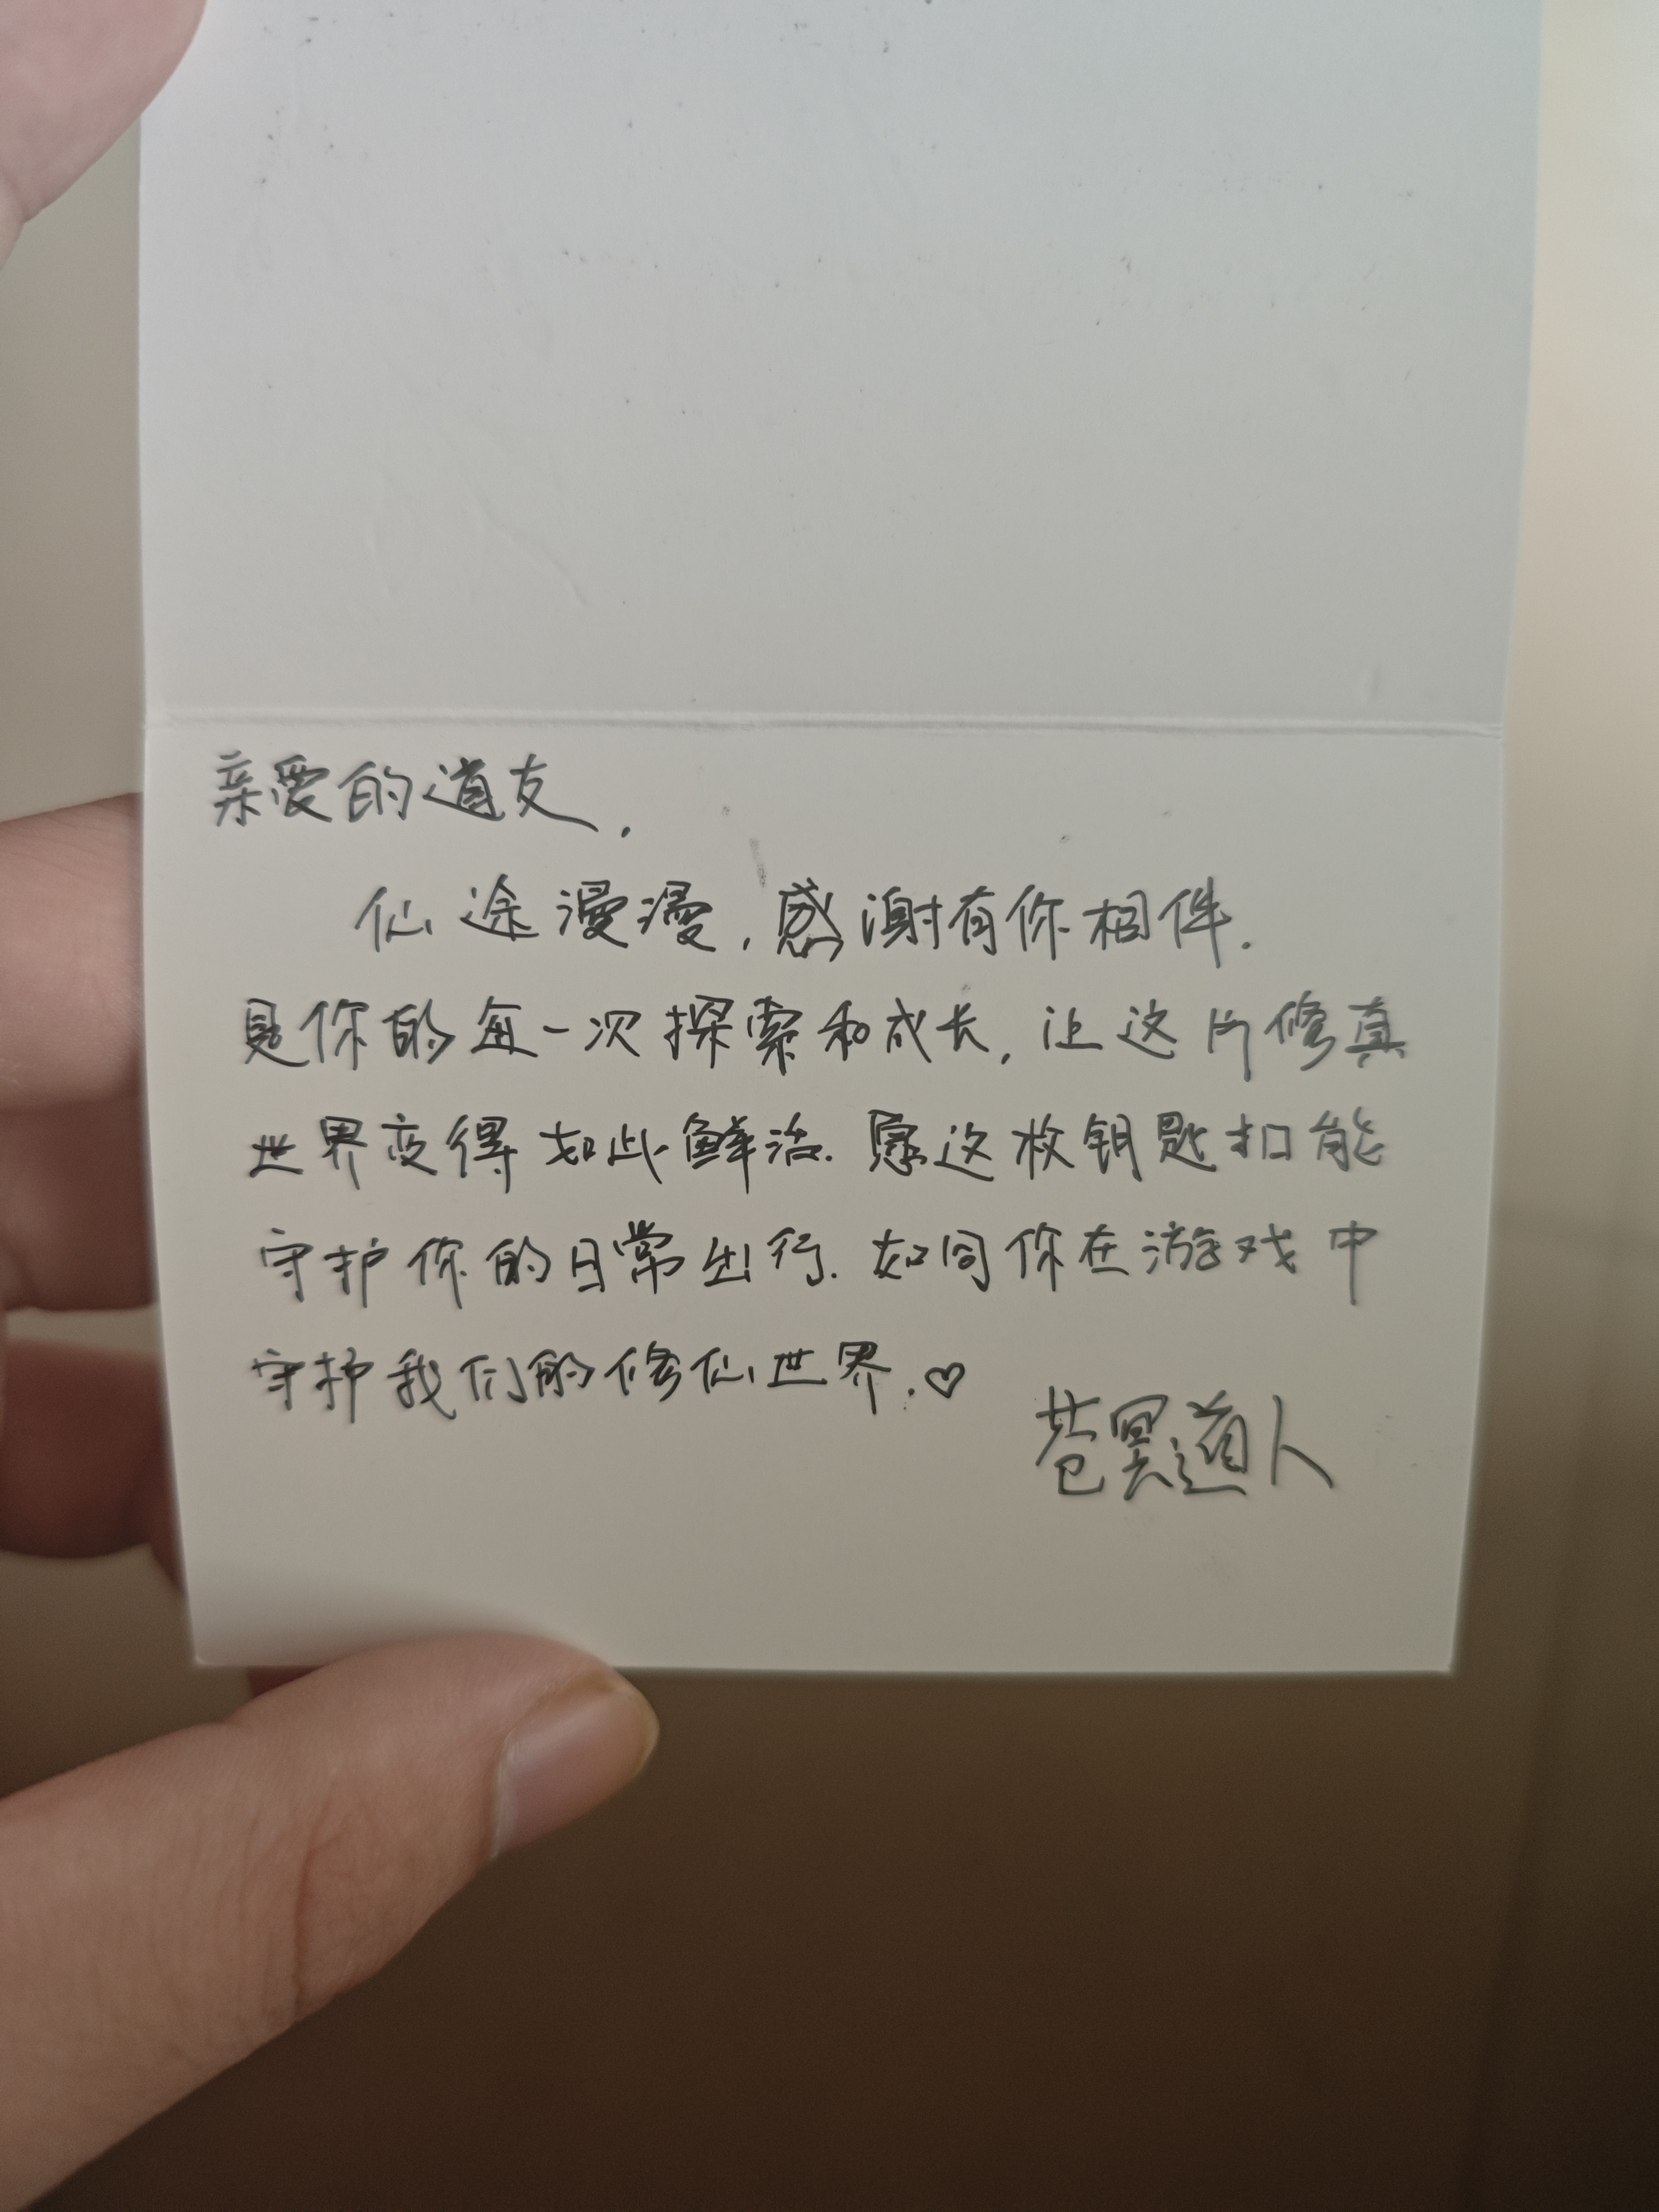 亲爱的道友,
仙途漫漫,感谢有你相伴.
是你的每一次探索和成长,让这片修真
世界变得如此鲜活.愿这枚钥匙扣能
守护你的日常出行.如同你在游戏中
守护我们的修仙世界.♡
苍冥道人